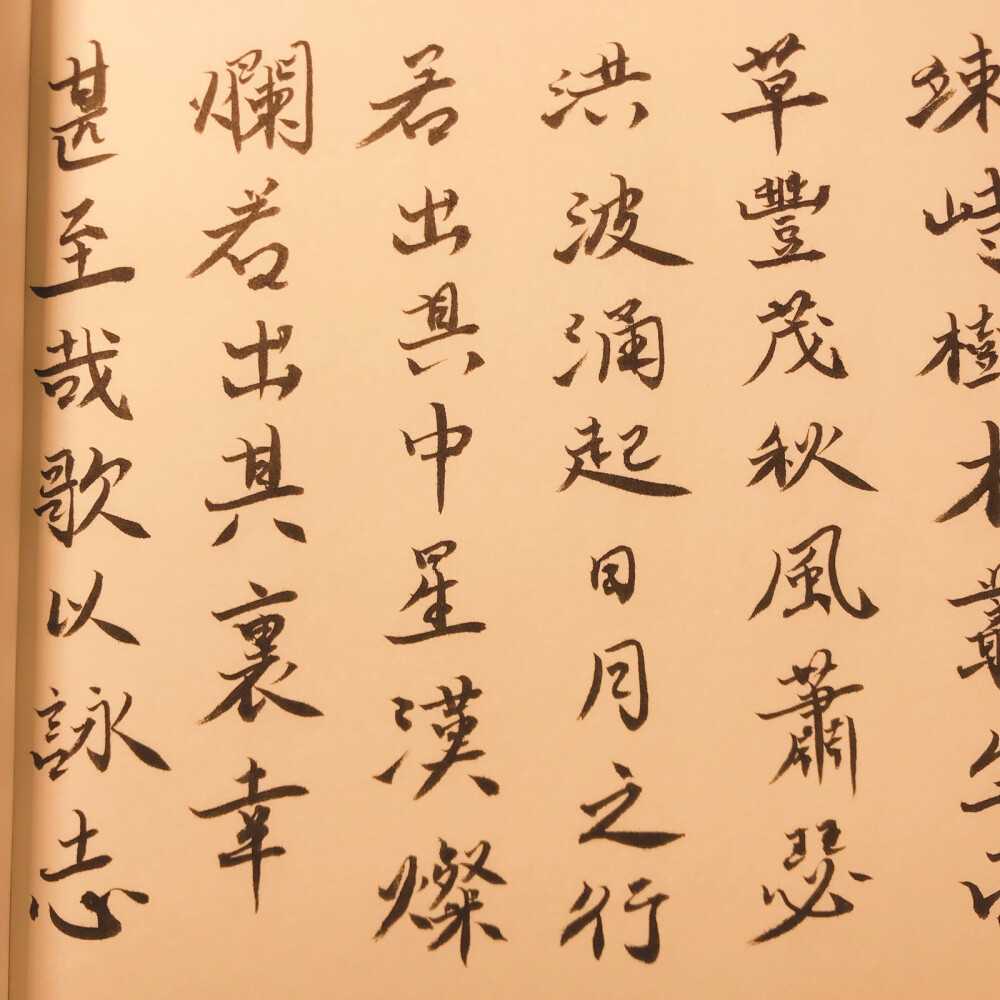 竦峙樹木叢生
草豐茂秋風蕭瑟
洪波涌起日月之行
若出其中星漢燦
爛若出其裏幸
甚至哉歌以詠志